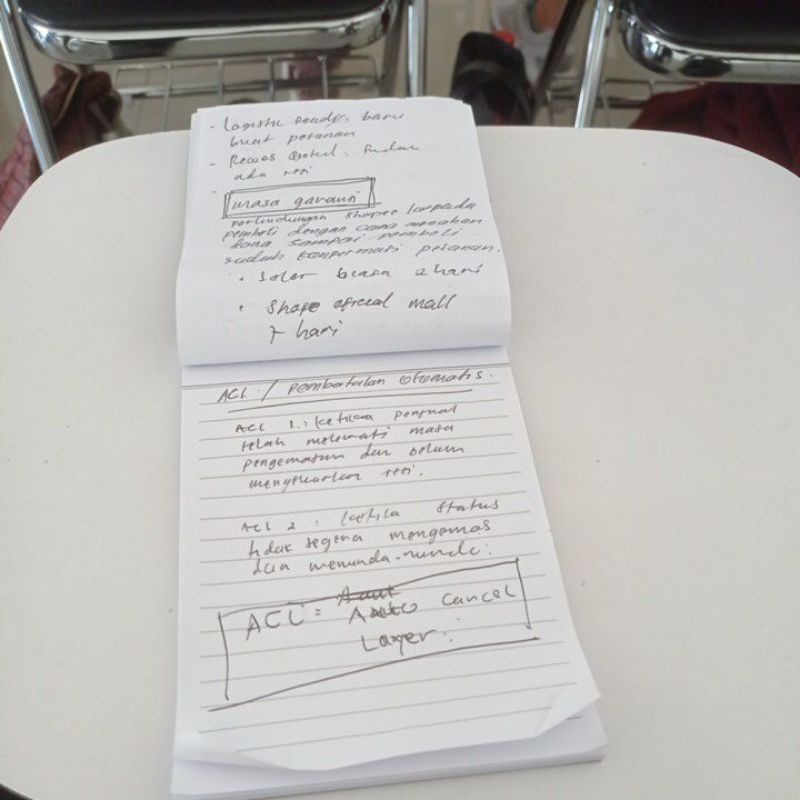 - Logistic ready : baru
buat pesanan
- Reques : sudah
ada resi
- masa garansi
perlindungan shopee kepada
pembeli dengan cara menahan
dana sampai pembeli
sudah konfirmasi pesanan.
• seler biasa 2 hari
• Shope oficial mall
7 hari
ACL / pembatalan otomatis.
ACL 1 : ketika penjual
telah melewati masa
pengemasan dan belum
menyertarkan resi.
ACL 2 : ketika status
tidak segera mengemas
dan menunda-nunda.
ACL = Auto cancel
Layer.